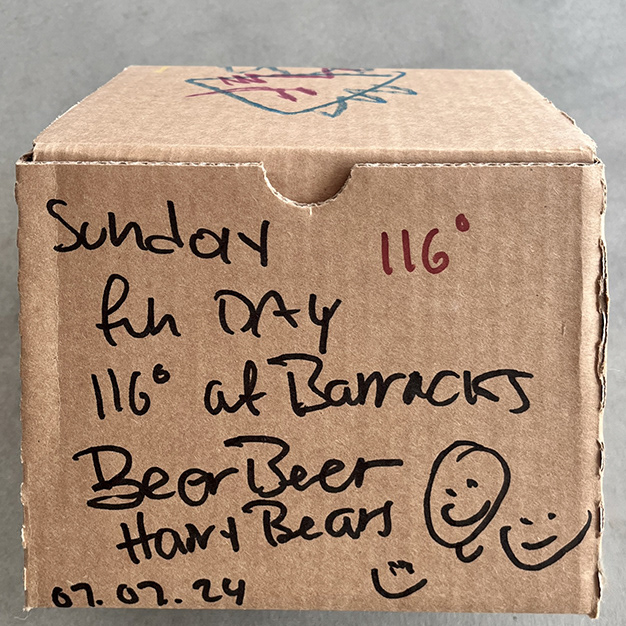 Sunday 116°
fun DAY
116° at BarrACKS
Bear Beer
Hairy Bears
07.07.24